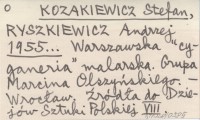 O KOZAKIEWICZ Stefan,
RYSZKIEWICZ Andrzej
1955... Warszawska "Cy-
ganeria" malarska. Grupa
Marcina Olszyńskiego. -
Wrocław. Źródła do Dzie-
jów Sztuki Polskiej VIII